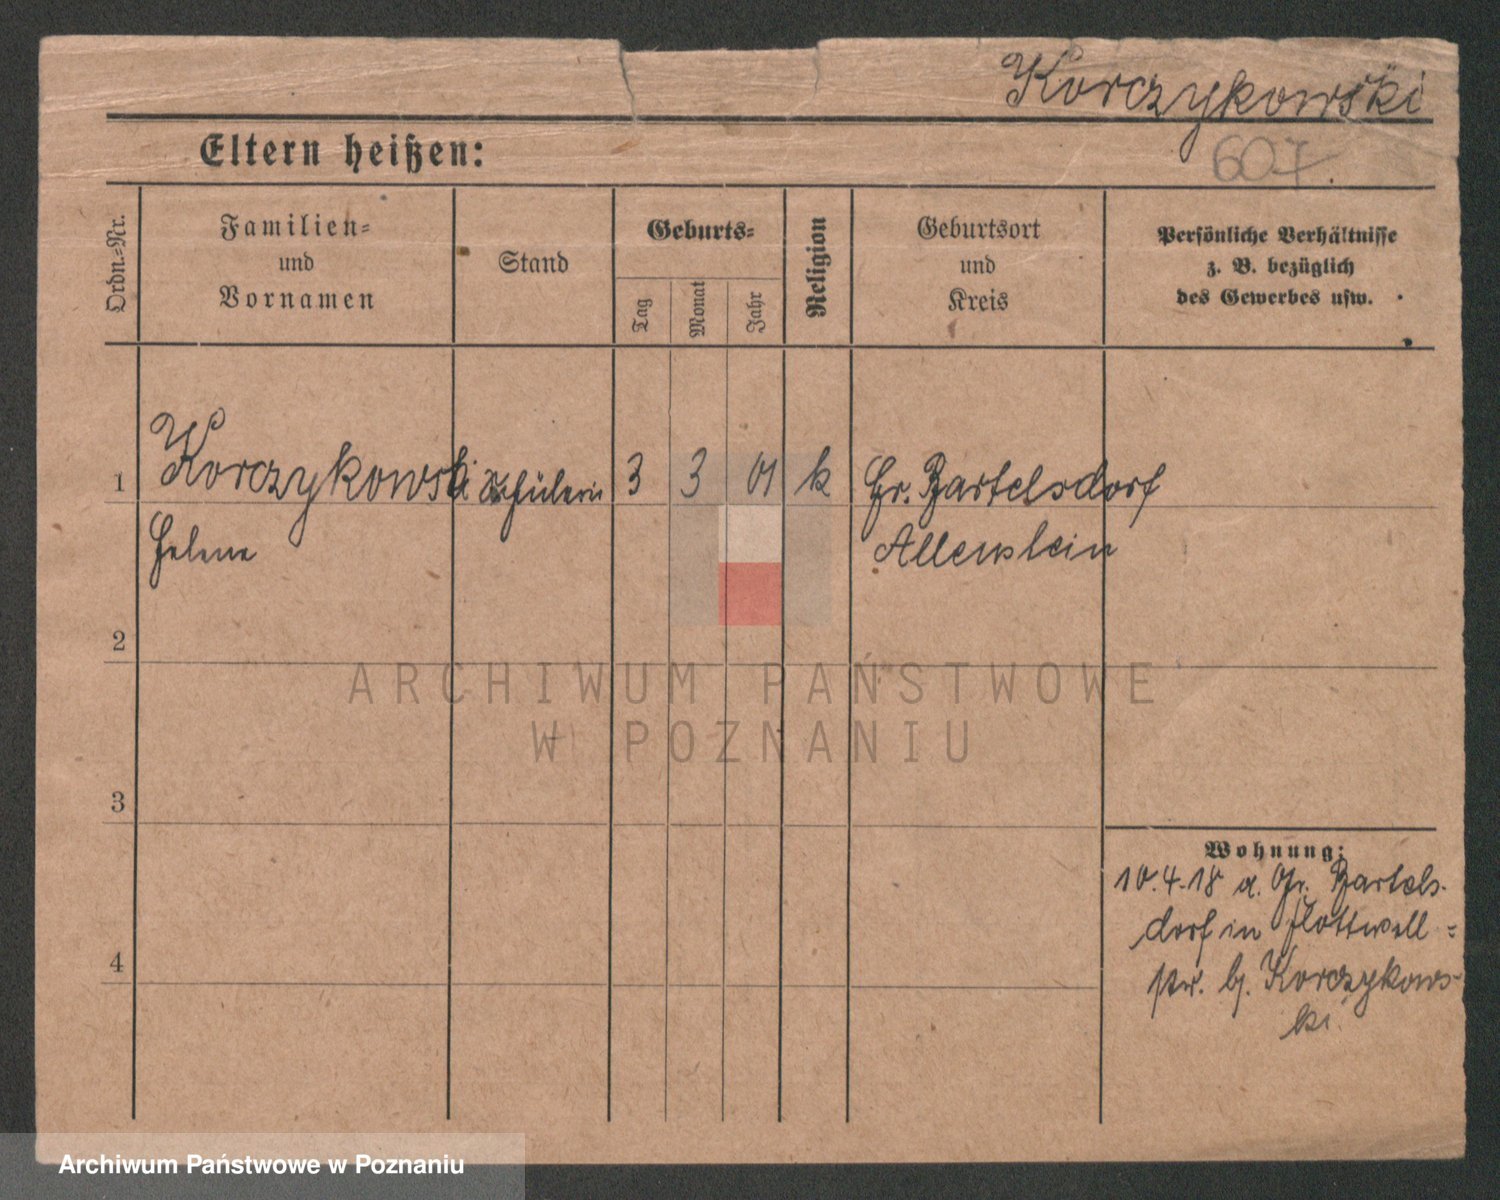 Korczykowski
607.
Eltern heißen:
Ordn.=Nr.
Familien=
und
Vornamen
Stand
Geburts=
Tag
Monat
Jahr
Religion
Geburtsort
und
Kreis
Persönliche Verhältnisse
z. B. bezüglich
des Gewerbes usw.
1 Korczykowski Schülerin 3 3 01 k Gr. Bartelsdorf
Helene Allenstein
2
ARCHIWUM PAŃSTWOWE
W POZNANIU
3
Wohnung:
10.4.18 a. Gr. Bartels-
dorf in Flottwell=
str. b. Korczykows-
ki.
4
Archiwum Państwowe w Poznaniu